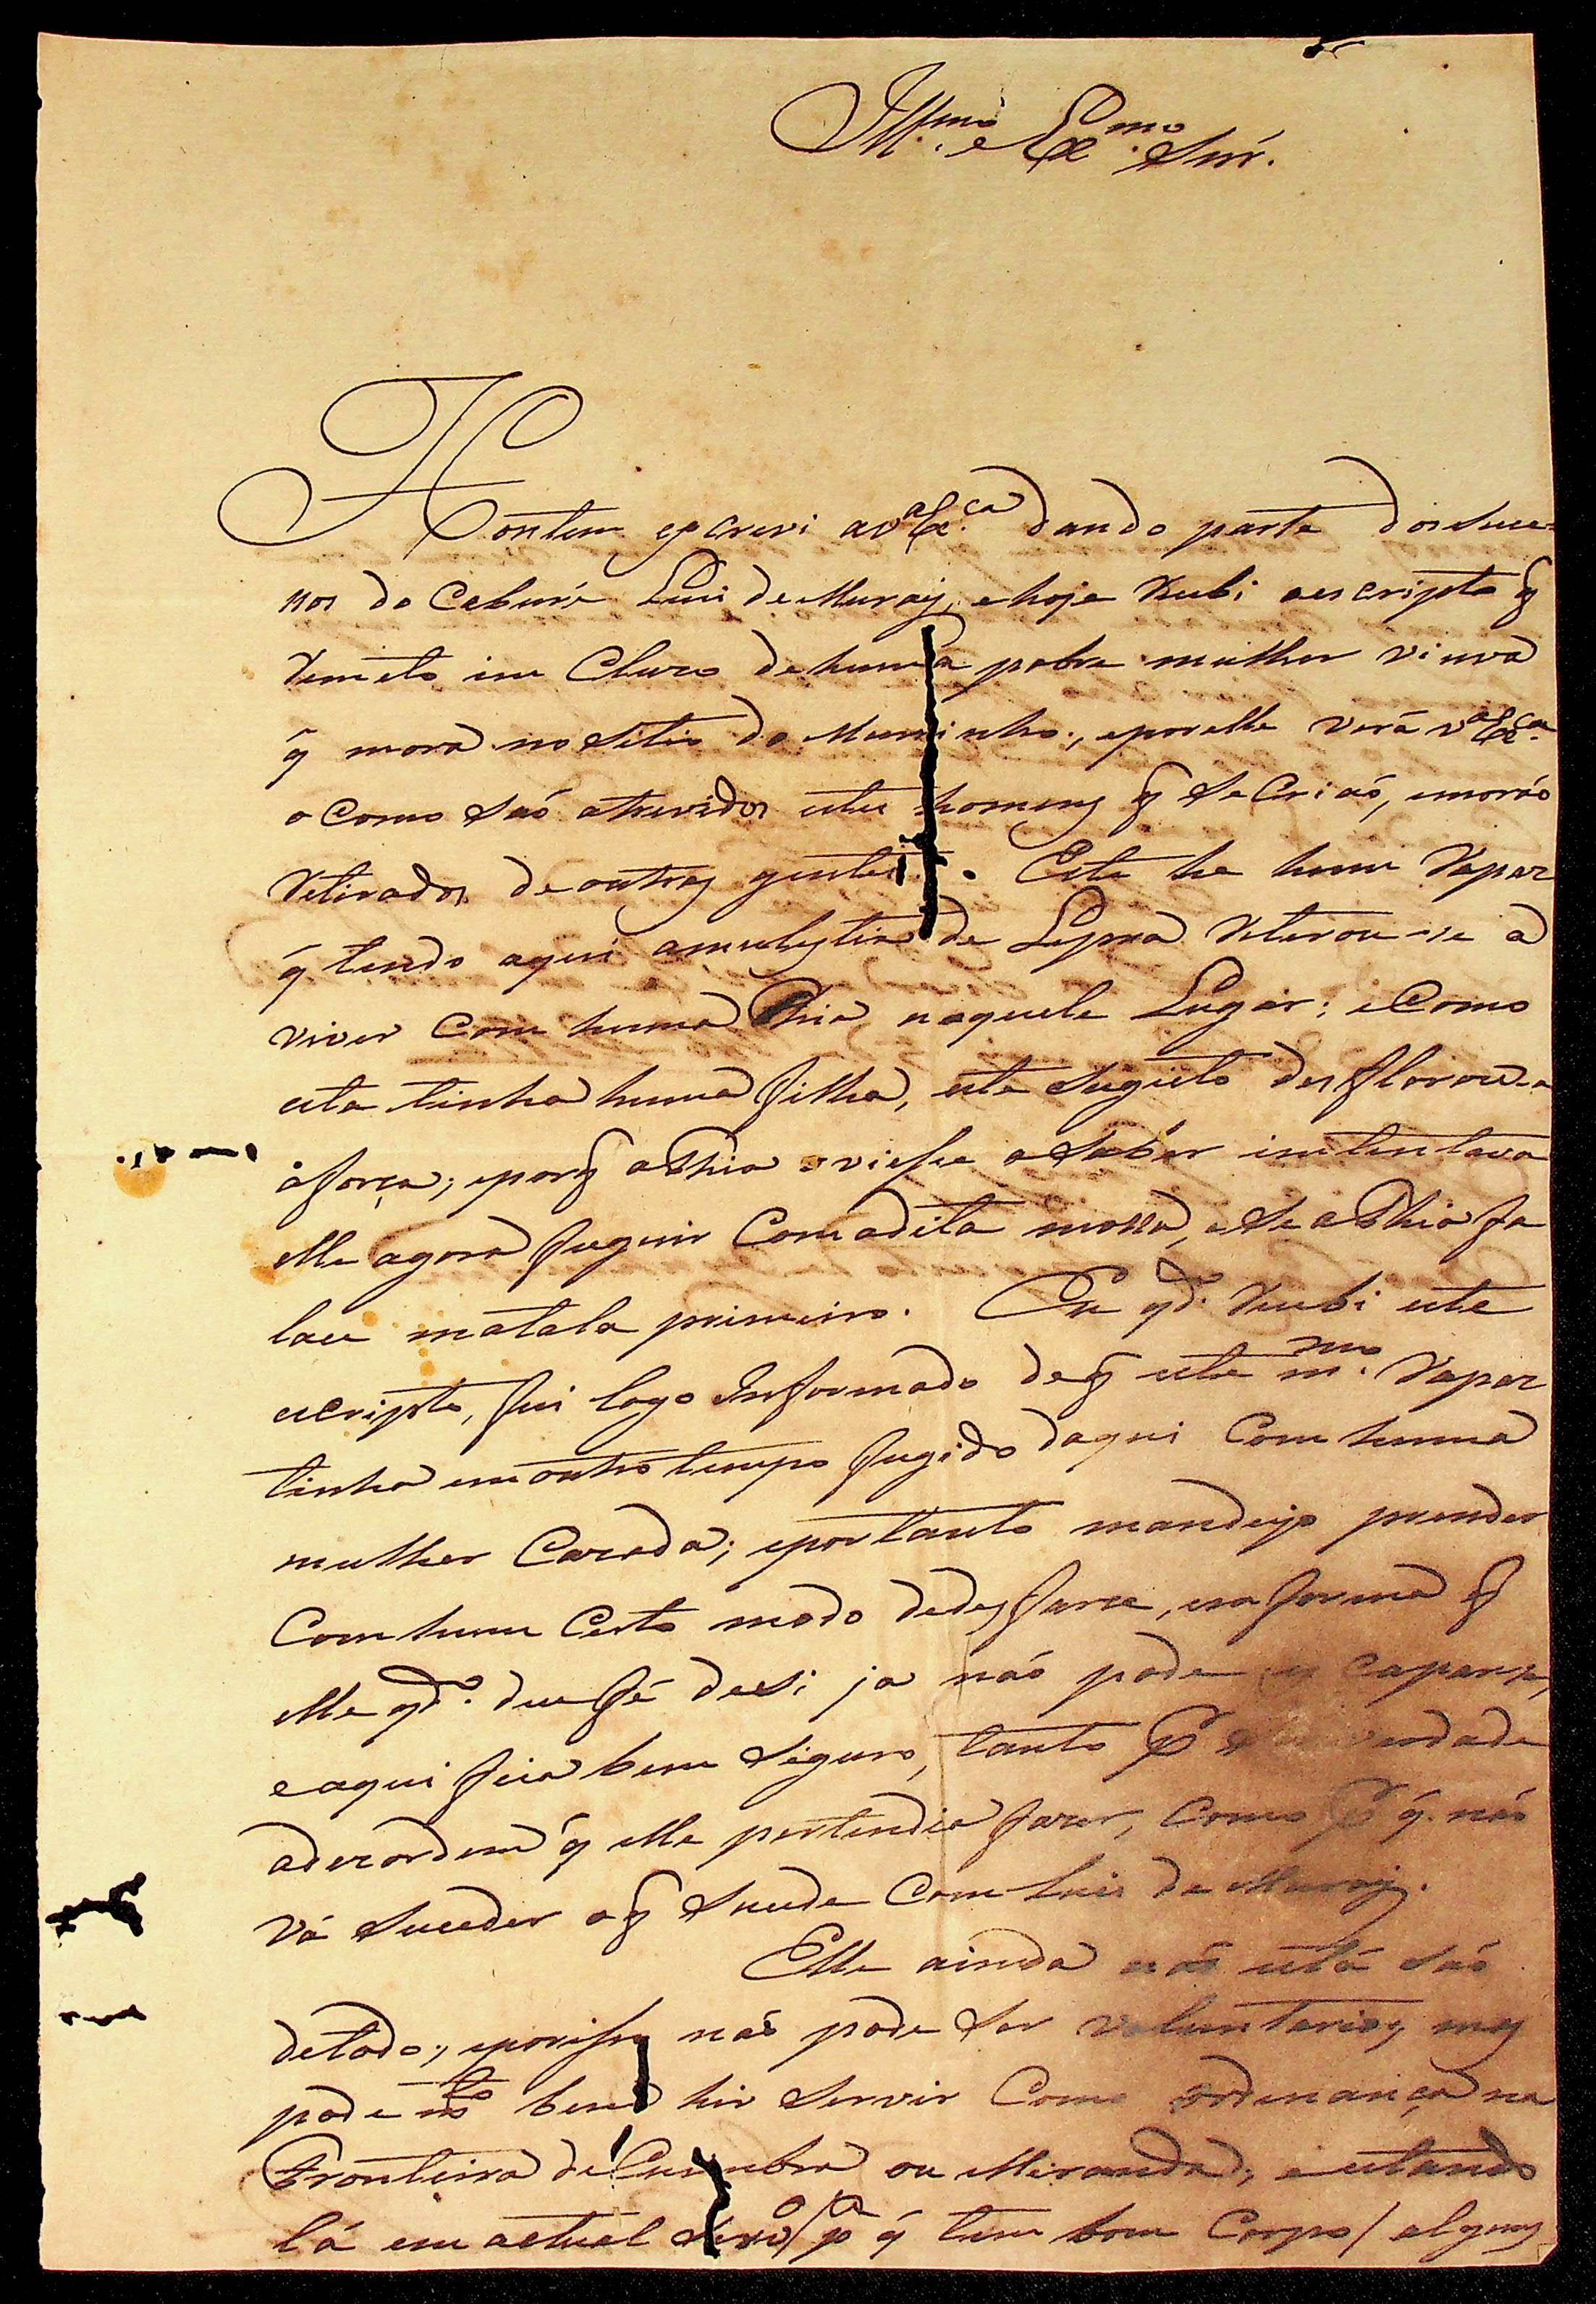 Ill.mo e Ex.mo Snr.
Hontem escrevi a V.a Ex.ca dando parte dos suce-
ssos do Caburé Luis de Muraes, e hoje recebi o escripto q̃
remeto incluzo de huma pobre mulher viuva
q̃ mora no sitio do Mun inho, e por elle verá V.a Ex.ca
o como saó atrevidos estes homens q̃ se criaó, e moraó
retirados de outras gentes. Este he hum rapaz
q̃ tendo aqui a mulestia de Lepra reterou-se a
viver com huma Thia naquele Lugar; e como
esta tinha huma filha, este sugieto desflorou-a
á força; e por q̃ a Thia o viesse a saber intentava
elle agora fugir com a dita mossa, e se a Thia fa
lace matala primeiro. Eu q.do recebi este
escripto, fui logo Informado de q̃ este m.mo rapaz
tinha em outro tempo fugido daqui com huma
mulher cazada; e por tanto mandei-o prender
com hum certo modo de desfarce, e na forma q̃
elle q.do deu fé de si ja naó pode escaparse,
e aqui fica bem siguro, tanto p.r verdade
a dezordem q̃ elle pertendia fazer, como p.r q̃ naó
vá suceder o q̃ sucede com Luis de Muraes.
Elle ainda naó está saó
de todo; e por isso naó pode ser voluntario, mas
pode m.to bem hir servir como ordenança na
Fronteira de Coimbra ou Miranda; e estando
lá em actual serv.o / p.a q̃ tem bom corpo / alguns